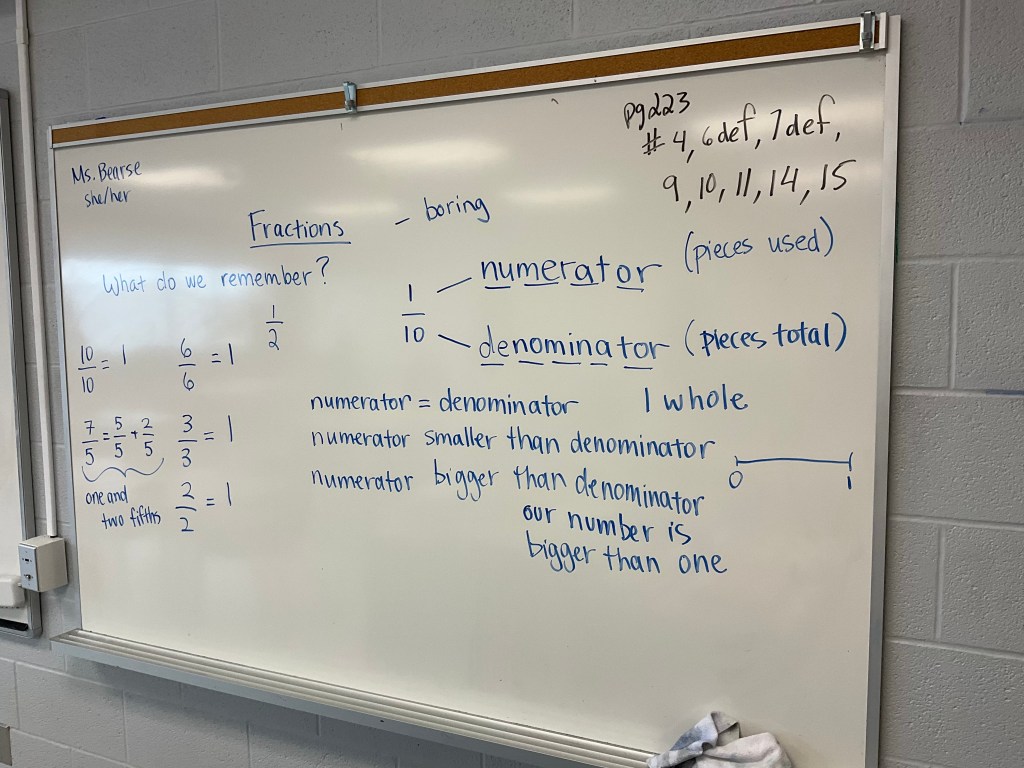 Ms. Bearse
she/her
pg 223
# 4, 6def, 7def,
9, 10, 11, 14, 15
Fractions - boring
What do we remember?
1/2
10/10 = 1
6/6 = 1
7/5 = 5/5 + 2/5
one and
two fifths
3/3 = 1
2/2 = 1
1/10
numerator (pieces used)
denominator (pieces total)
numerator = denominator 1 whole
numerator smaller than denominator
0 1
numerator bigger than denominator
our number is
bigger than one